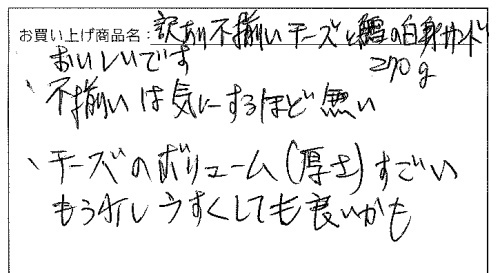 お買い上げ商品名：訳あり不揃いチーズと鱈の白身サンド
270g
おいしいです
、不揃いは気にするほど無い
、チーズのボリューム(厚さ)すごい
もう少しうすくしても良いかも